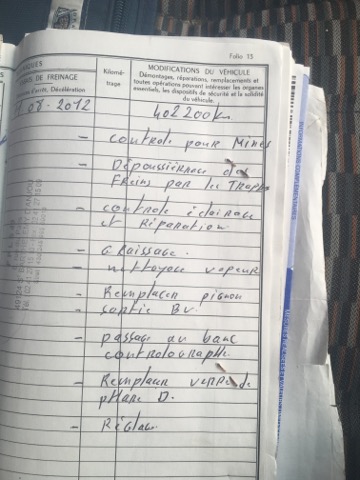 Folio 13
ARQUES
MODIFICATIONS DU VÉHICULE
Démontages, réparations, remplacements et
toutes opérations pouvant intéresser les organes
essentiels, les dispositifs de sécurité et la solidité
du véhicule.
IS DE FREINAGE
d'arrêt, Décélération
Kilomé-
trage
08-2012
402200km
- controle pour Mines
- Dépoussiérage des
Freins par les Trappes
- controle éclairage
et Réparation
- Graissage.
- nettoyage vapeur
- Remplacer pignon
- sortie BV.
- passage au banc
controlographe.
- Remplacer verre de
phare D.
- Réglage